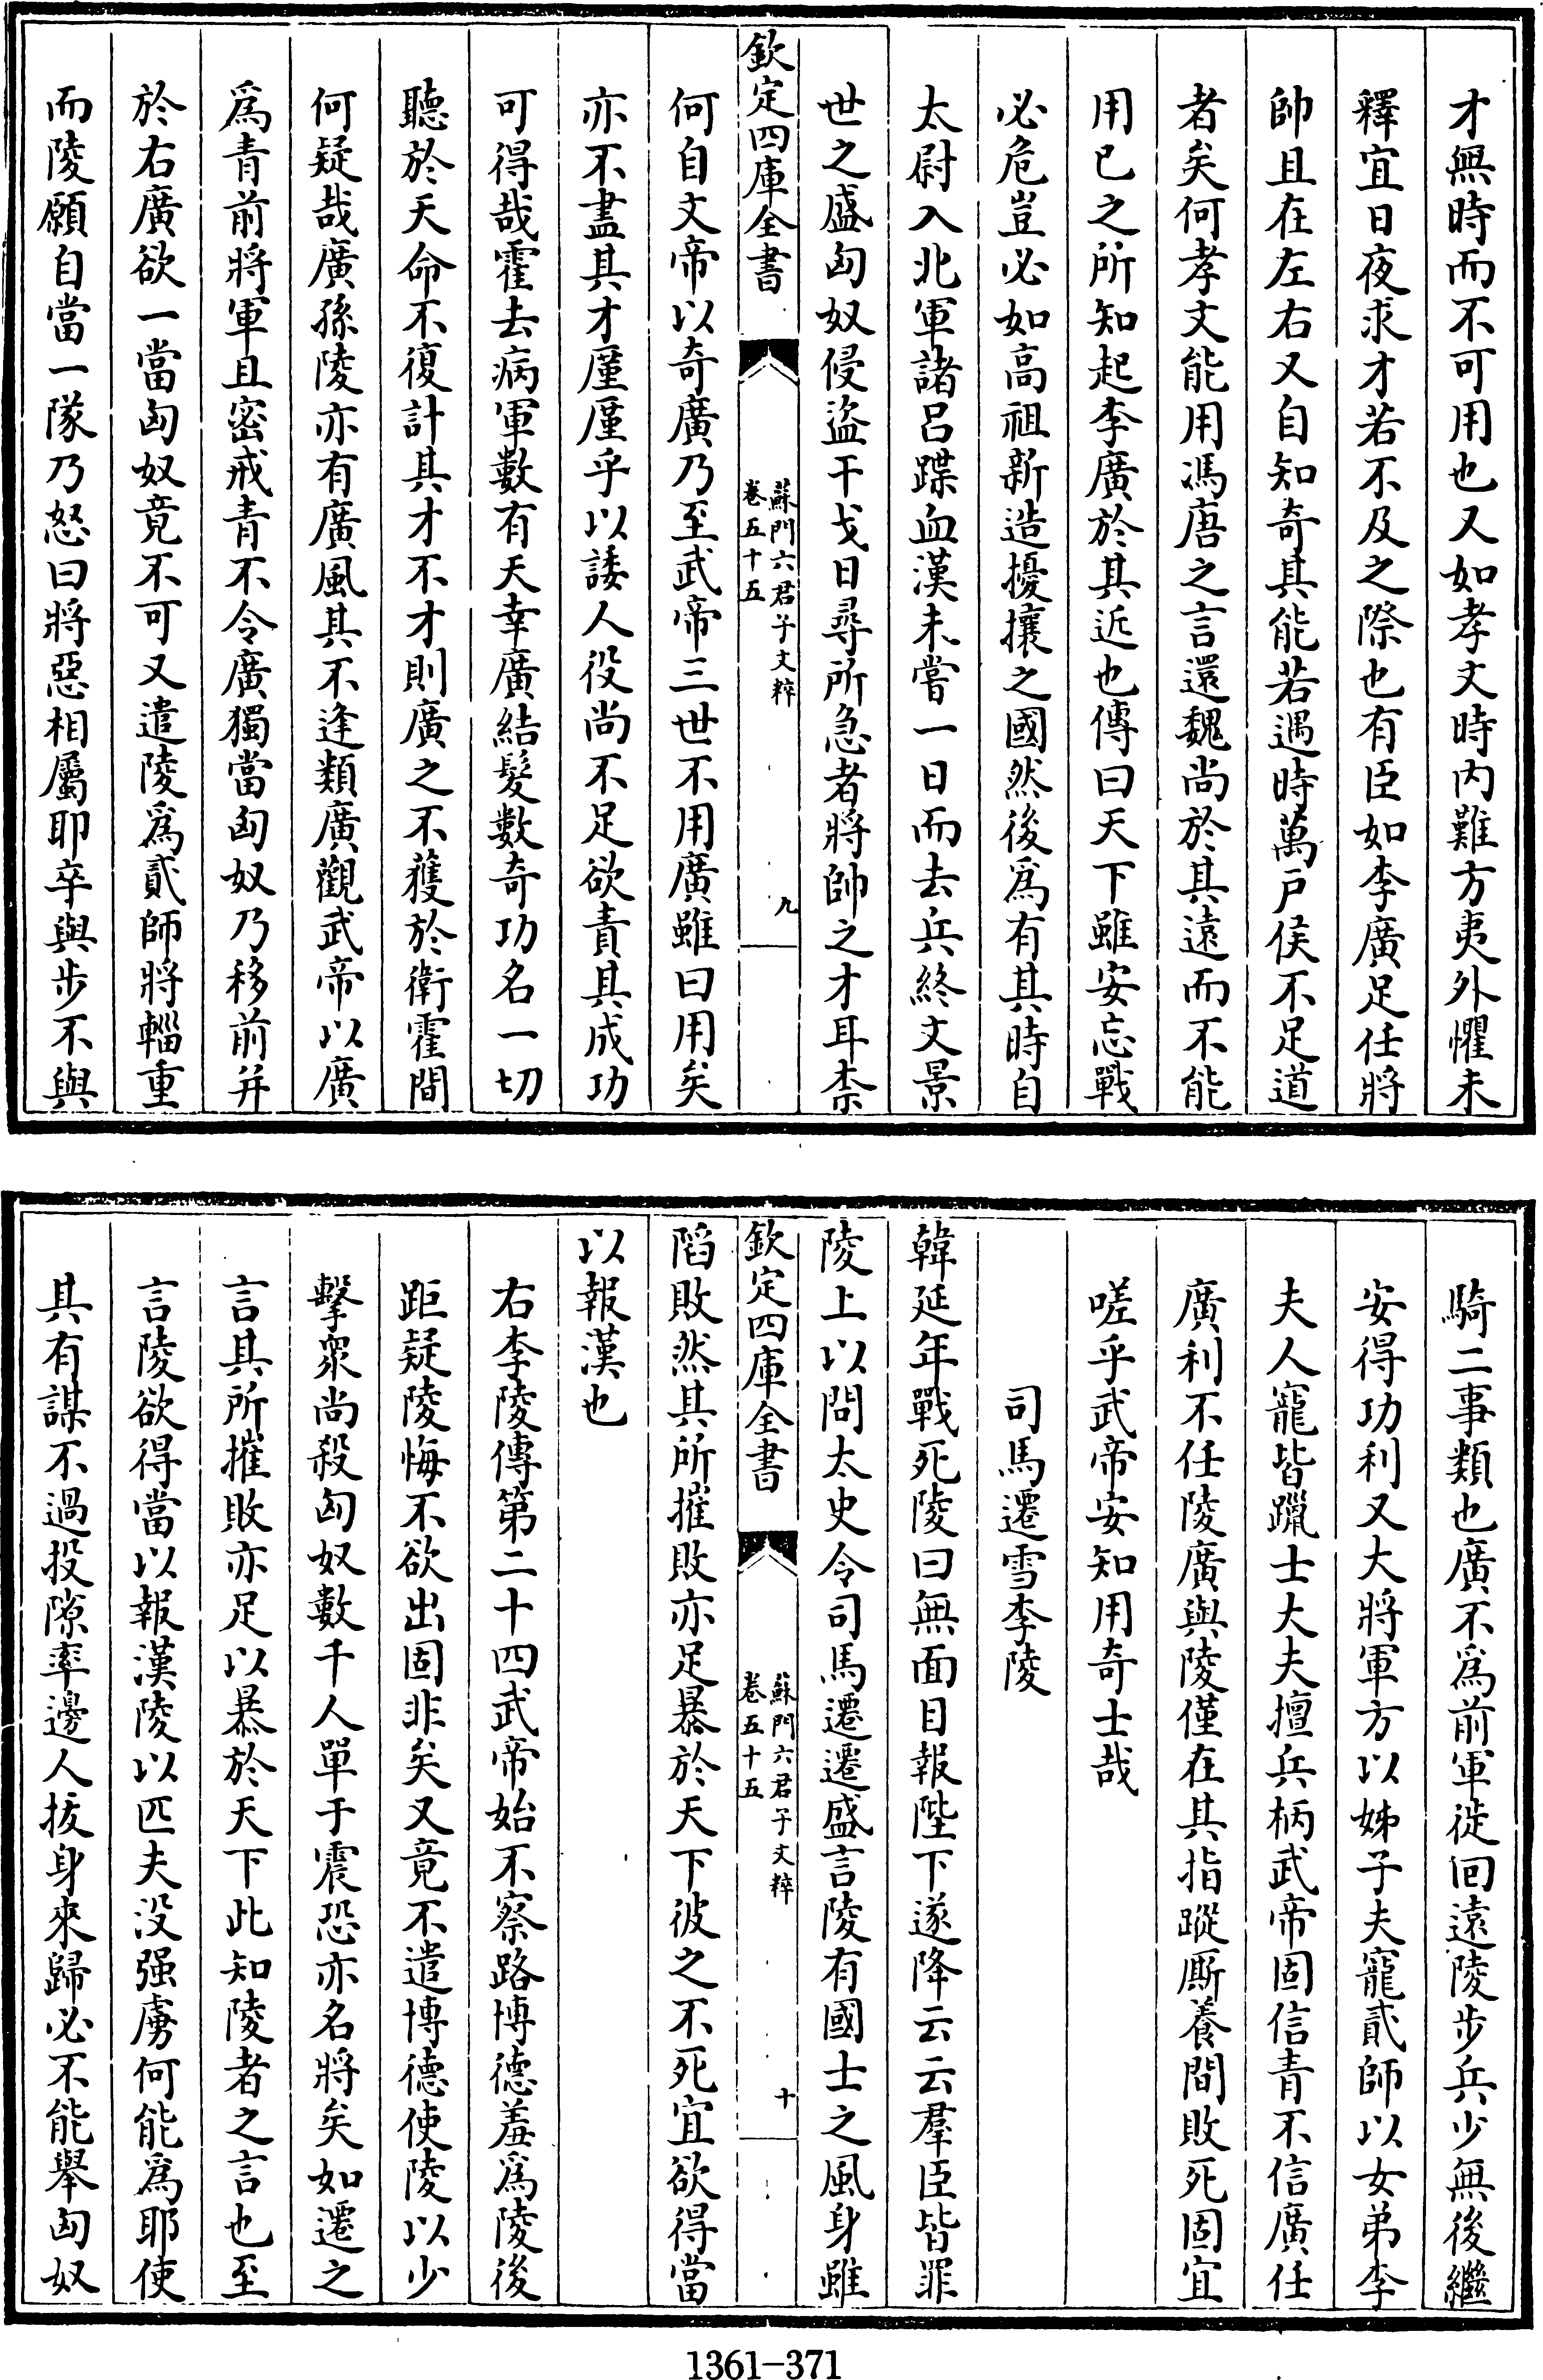 才無時而不可用也又如孝文時内難方夷外懼未
釋宜日夜求才若不及之際也有臣如李廣足任將
帥且在左右又自知奇其能若遇時萬戸侯不足道
者矣何孝文能用馮唐之言還魏尚於其遠而不能
用已之所知起李廣於其近也傳曰天下雖安忘戰
必危豈必如高祖新造擾攘之國然後爲有其時自
太尉入北軍諸吕蹀血漢未嘗一日而去兵終文景
世之盛匈奴侵盜干戈日尋所急者將帥之才耳柰
欽定四庫全書
蘇門六君子文粹
卷五十五
九
何自文帝以奇廣乃至武帝三世不用廣雖曰用矣
亦不盡其才厪厪乎以諉人役尚不足欲責其成功
可得哉霍去病軍數有天幸廣結髮數奇功名一切
聽於天命不復計其才不才則廣之不獲於衛霍間
何疑哉廣孫陵亦有廣風其不逢類廣觀武帝以廣
爲青前將軍且密戒青不令廣獨當匈奴乃移前并
於右廣欲一當匈奴竟不可又遣陵爲貳師將輜重
而陵願自當一隊乃怒曰將惡相屬耶卒與步不與
騎二事類也廣不爲前軍徙回遠陵步兵少無後繼
安得功利又大將軍方以姊子夫寵貳師以女弟李
夫人寵皆躐士大夫擅兵柄武帝固信青不信廣任
廣利不任陵廣與陵僅在其指蹤厮養間敗死固宜
嗟乎武帝安知用奇士哉
司馬遷雪李陵
韓延年戰死陵曰無面目報陛下遂降云云羣臣皆罪
陵上以問太史令司馬遷遷盛言陵有國士之風身雖
欽定四庫全書
蘇門六君子文粹
卷五十五
十
陷敗然其所摧敗亦足暴於天下彼之不死宜欲得當
以報漢也
右李陵傳第二十四武帝始不察路博德羞爲陵後
距疑陵悔不欲出固非矣又竟不遣博德使陵以少
擊衆尚殺匈奴數千人單于震恐亦名將矣如遷之
言其所摧敗亦足以暴於天下此知陵者之言也至
言陵欲得當以報漢陵以匹夫没强虜何能爲耶使
其有謀不過投隙率邊人拔身來歸必不能舉匈奴
1361-371